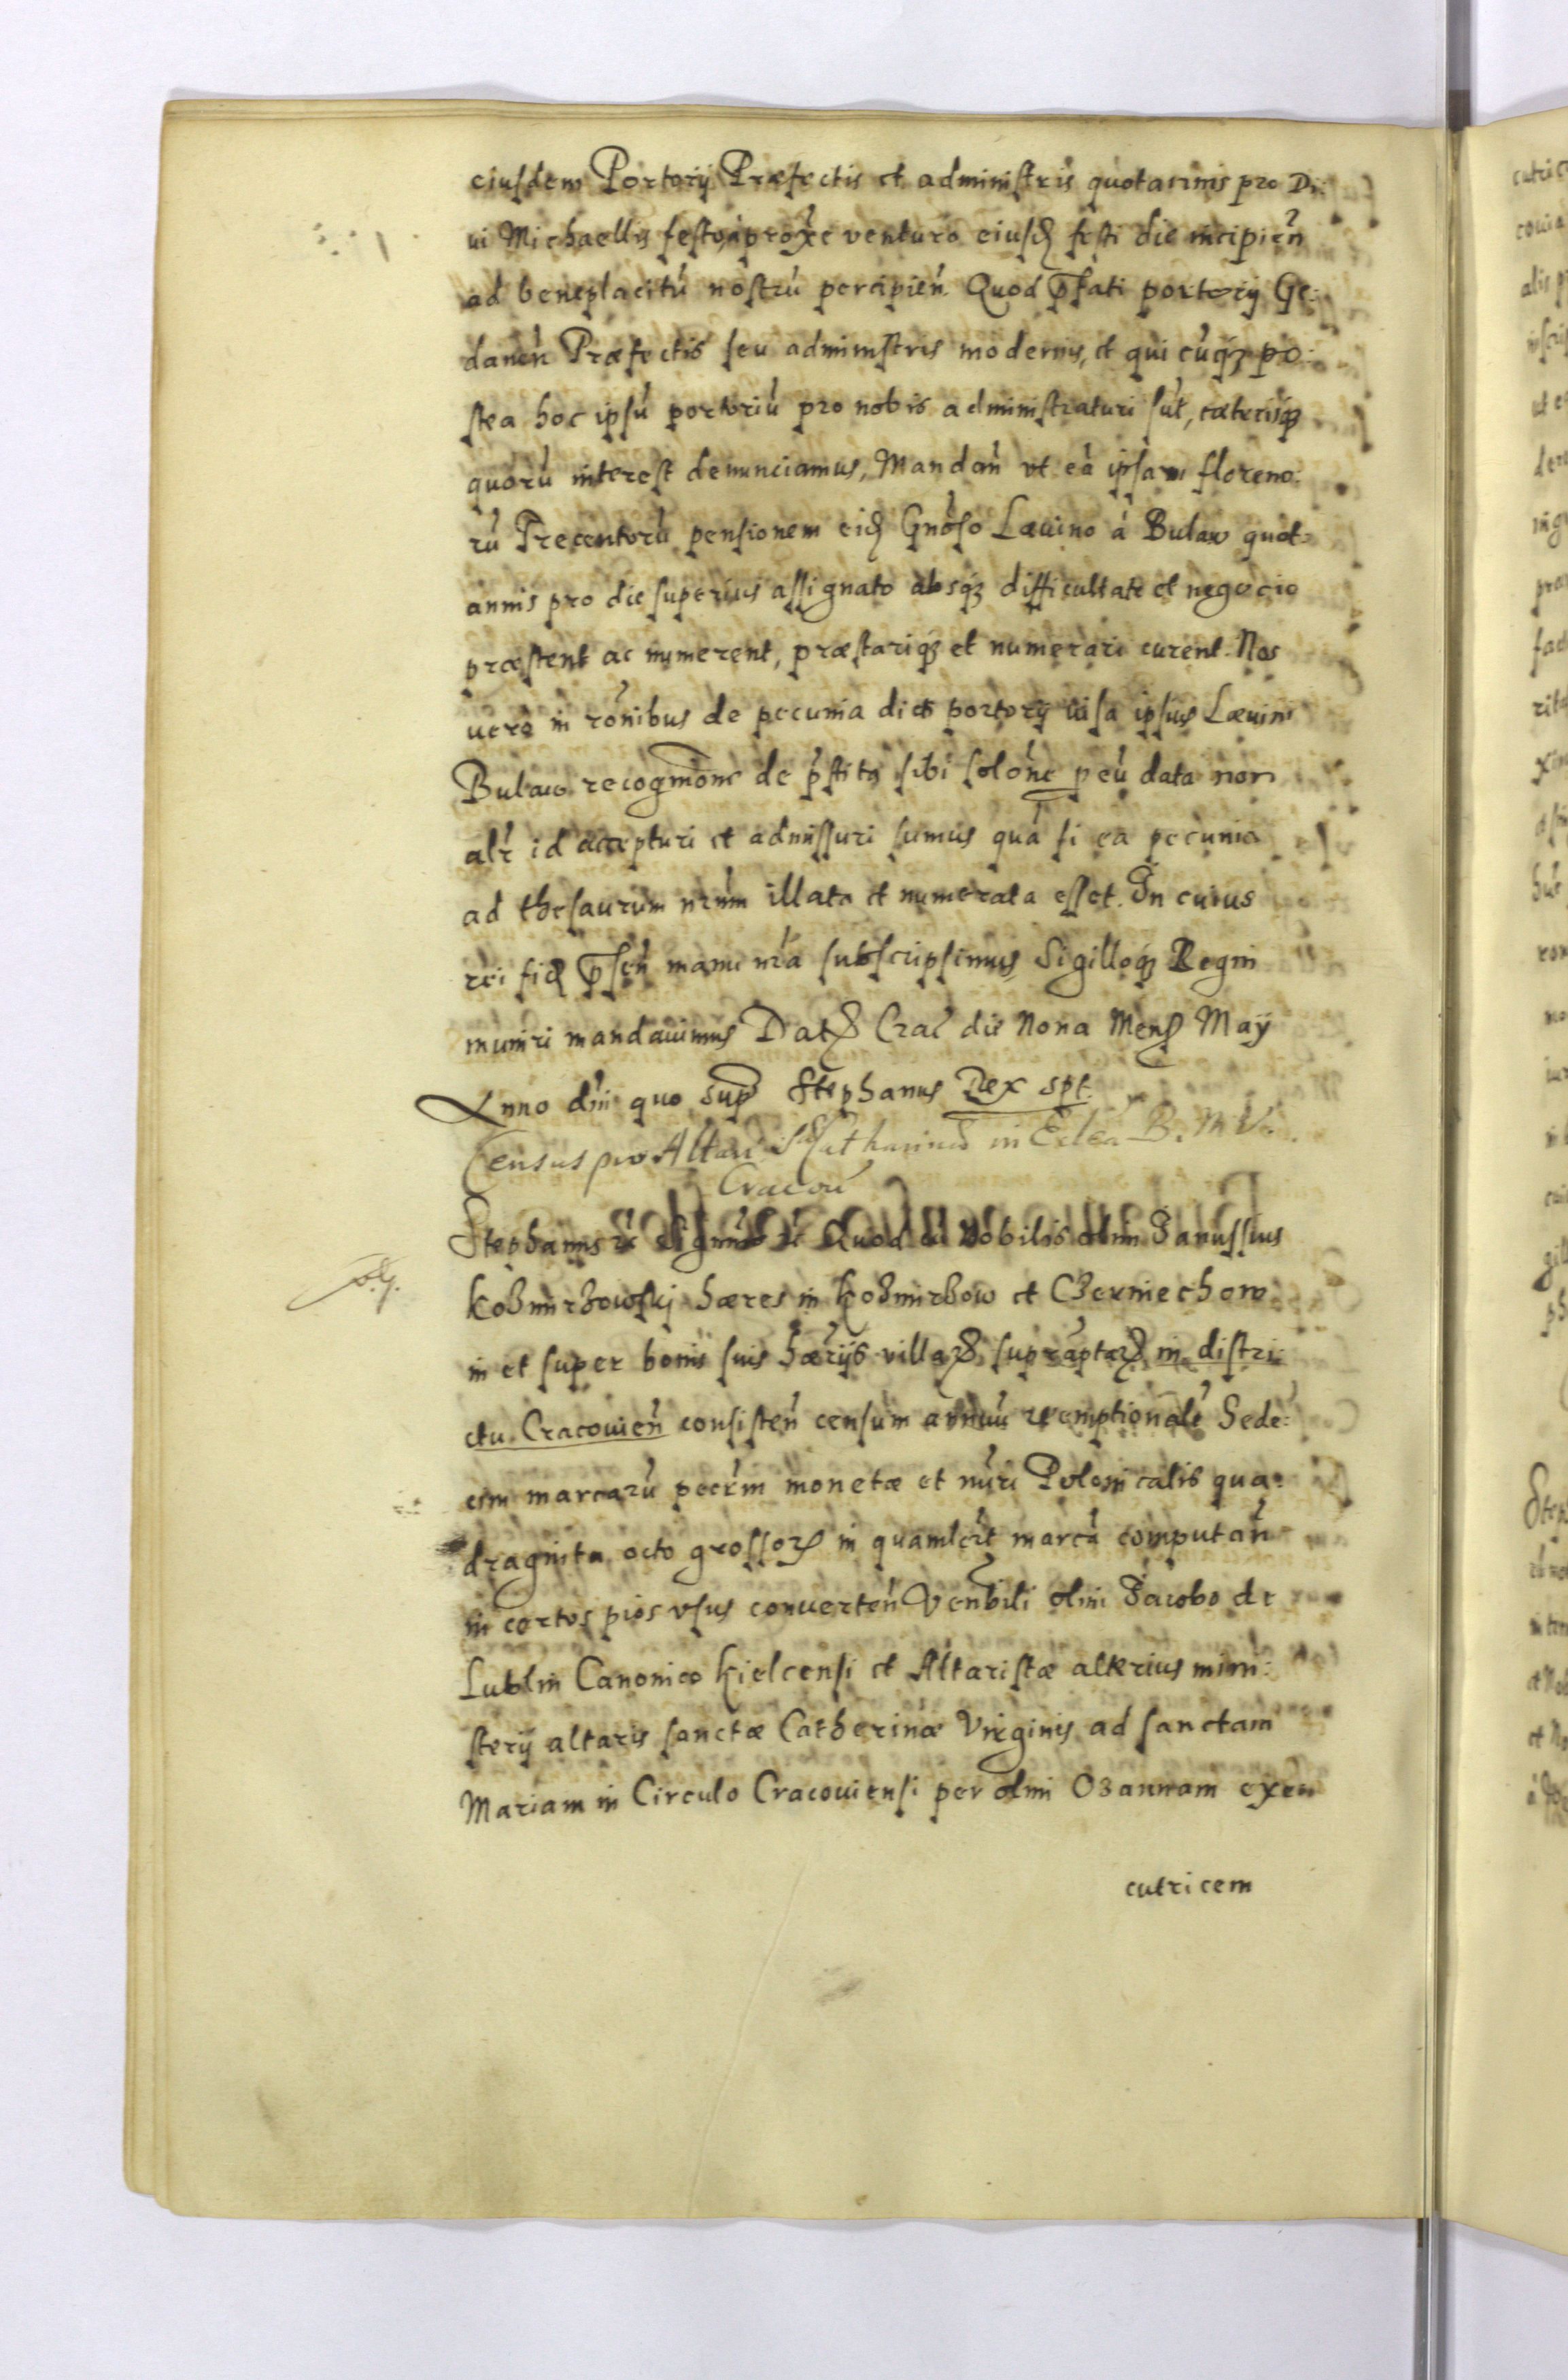 eiusdem Portorij Præfectis et administris quotannis pro Di:
ui Michaellis festo, a proxe venturo eiusd festi die incipien̄
ad beneplacitū nostrū percipien̄. Quod p̄fati portorij Ge:
danen̄ Præfectis seu administris modernis, et qui cūq₃ po:
stea hoc ipsū portoriū pro nobis administraturi sūt, cæterisq₃
quorū interest denunciamus, Mandan̄ vt eā ipsam floreno:
rū Trecentorū pensionem eid Gnōso Læuino á Bulaw quot:
annis pro die superius assignato absq₃ difficultate et negocio
præstent ac numerent, præstariq₃ et numerari curent. Nos
vero in rōnibus de pecunia dicti portorij visa ipsius Læuini
Bulaw recognōne de p̄stita sibi solōne peū data non
alr̄ id accepturi et admissuri sumus quā si ea pecunia
ad thesaurum nrūm illata et numerata esset. In cuius
rei fid p̄sen̄ manu nrā subscripsimus, Sigilloq₃ Regni
muniri mandauimus Dat Crac̄ die Nona Mens Maij
Anno dn̄i quo sup̄ Stephanus Rex spt.
Census pro Altari S Catharinæ in Eclēa B. M V.
Cracou
Stephanus rc̄ Signūs rc̄ Quod cū Nobilis olim Janussius
Kozmirzowskj hæres in Kozmirzow et Czerniechow
in et super bonis suis hæriis villar suprāptar in distri:
ctu Cracouien̄ consisten̄ censum annuū reemptionalē Sede:
cim marcarū pecrm monetæ et nūri Polonicalis qua:
draginta octo grossor in quamlēt marcā computan̄
in certos pios vsus conuerten̄ Venbili olim Jacobo de
Lublin Canonico Kielcensi et Altaristæ alterius mini:
sterij altaris sanctæ Catherinæ Virginis ad sanctam
Mariam in Circulo Cracouiensi per olim Ozannam exen
cutricem